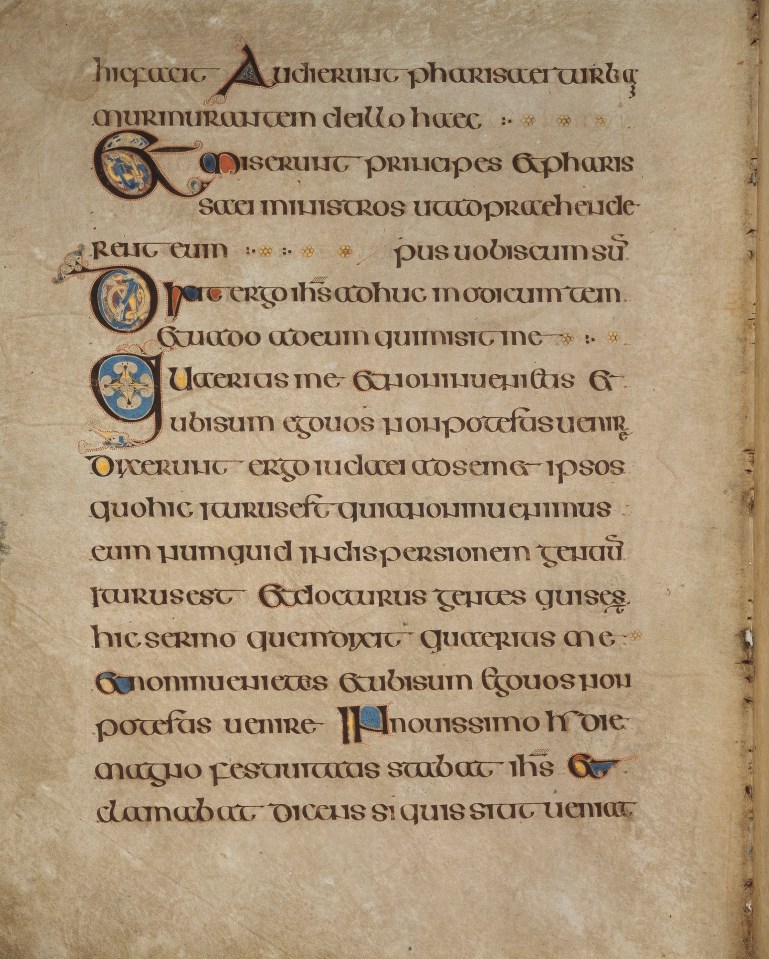 hic facit Audierunt pharisaei turbā
murmurantem deillo haec
Et miserunt principes et pharis
saei ministros utadpraehende
rent eum pus uobiscum sū
Dixit ergo ihs adhuc modicum tem
et uado adeum quimisit me
Quaeritis me et noninuenietis et
ubisum egouos nonpotestis uenire
dixerunt ergo iudaei adsemet ipsos
quohic iturusest quianoninuenimus
eum numquid indispersionem gentiū
iturusest et docturus gentes quis es
hicsermo quemdixit quaeritis me
et noninuenietis et ubisum egouosnon
potestis uenire In nouissimo h die
magno festiuitatis stabat ihs et
clamabat dicens siquis sitit ueniat